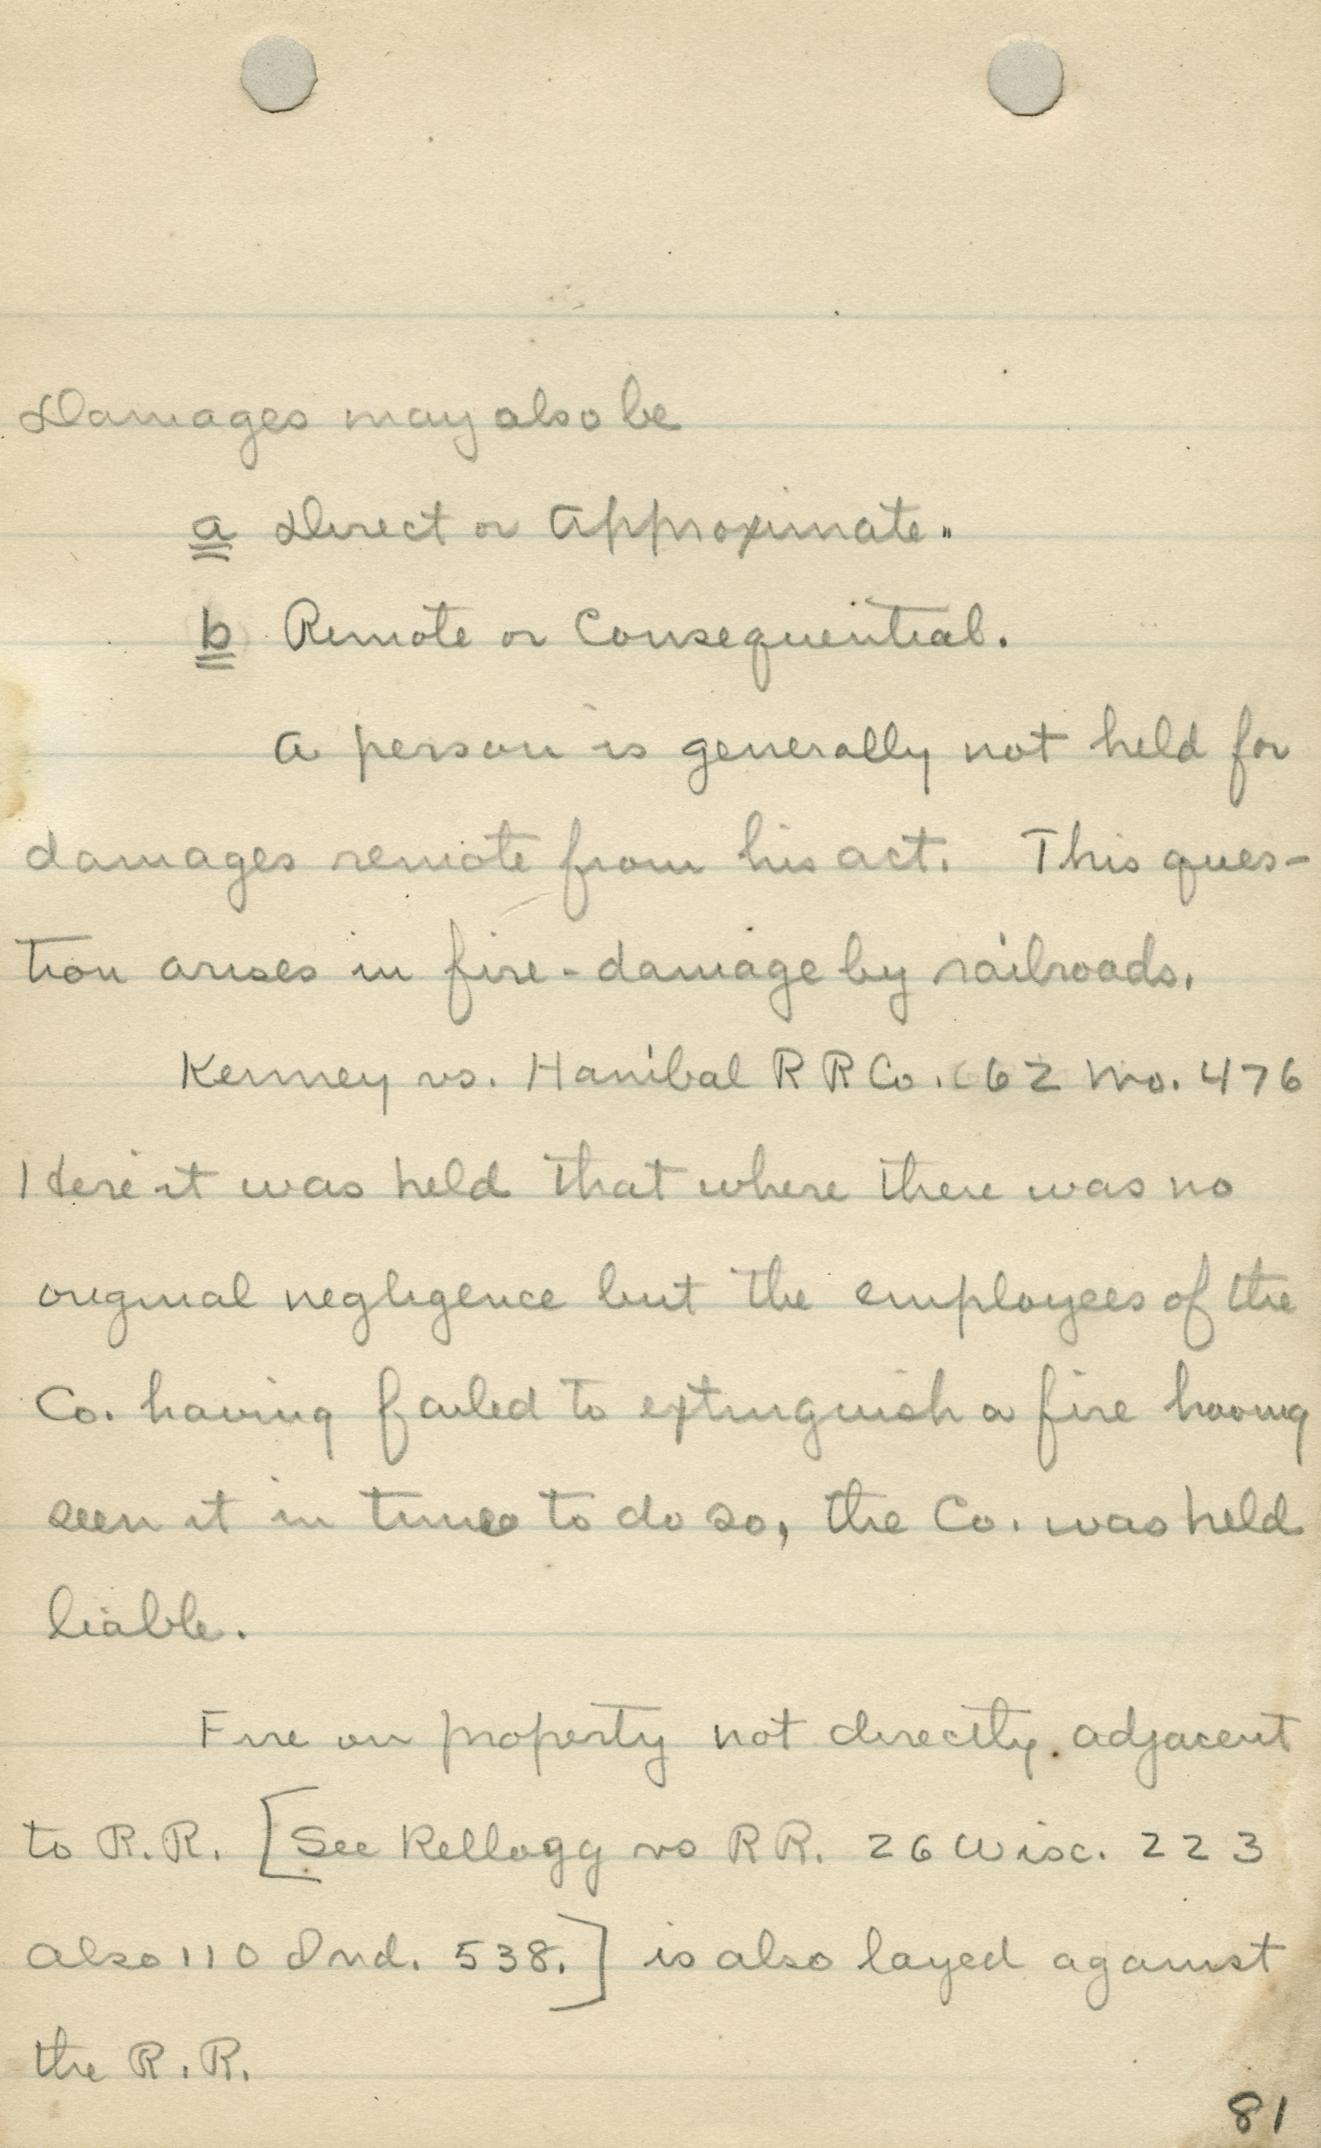 Damages may also be
a Direct or Approximate.
b Remote or Consequential.
A person is generally not held for
damages remote from his act. This ques-
tion arises in fire-damage by railroads.
Kenney vs. Hanibal R R Co. 62 Mo. 476
Here it was held that where there was no
original negligence but the employees of the
Co. having failed to extinguish a fire having
seen it in time to do so, the Co. was held
liable.
Fire on property not directly adjacent
to R.R. [See Kellogg vs RR. 26 Wisc. 223
also 110 Ind. 538.] is also layed against
the R.R.
81